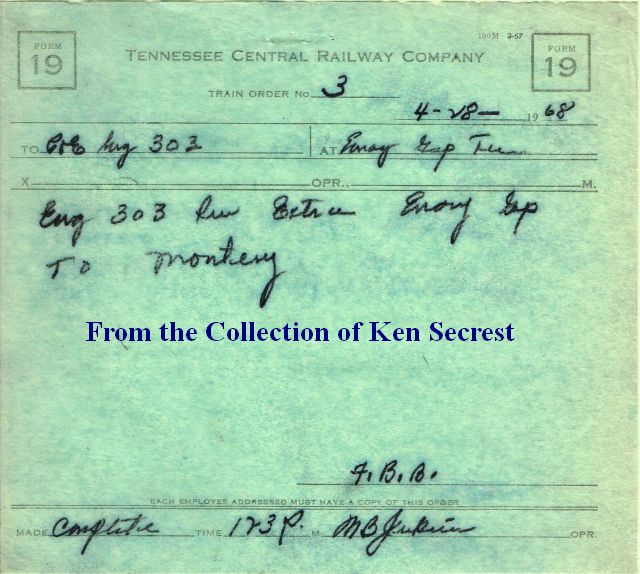 FORM 19
TENNESSEE CENTRAL RAILWAY COMPANY
100M 3-67
FORM 19
TRAIN ORDER No. 3
4-28- 1968
TO C&E Eng 303 AT Emory Gap Tenn
X OPR., M.
Eng 303 Run Extra Emory Gap
To Monterey
From the Collection of Ken Secrest
F.B.B.
EACH EMPLOYEE ADDRESSED MUST HAVE A COPY OF THIS ORDER
MADE Complete TIME 123 P. M. MB OPR.